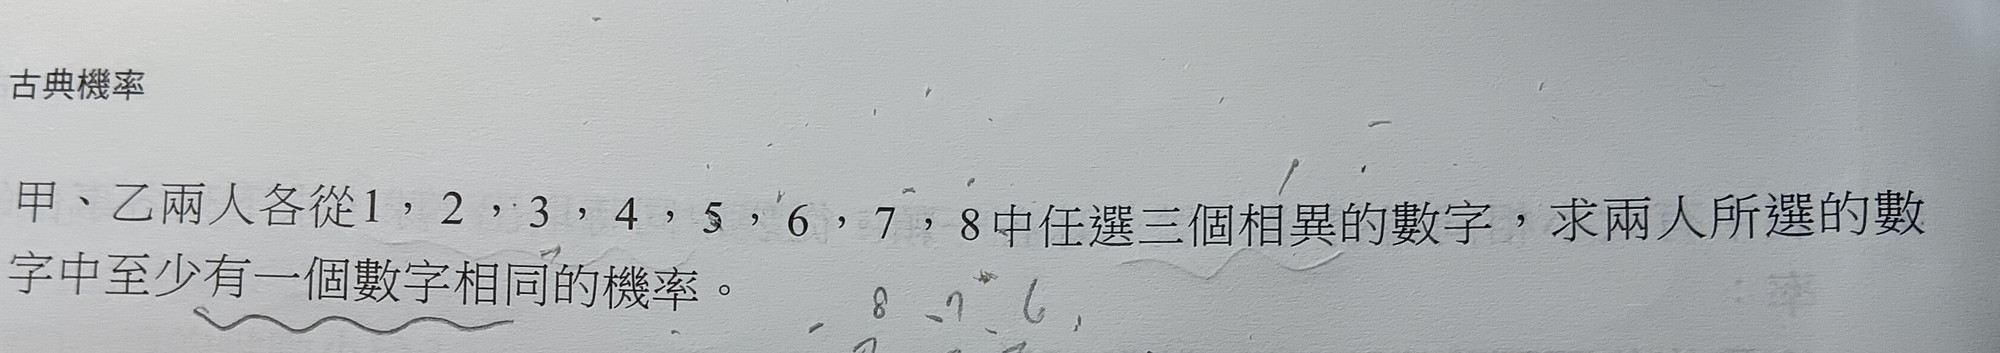 古典機率
甲、乙兩人各從1,2,3,4,5,6,7,8中任選三個相異的數字,求兩人所選的數
字中至少有一個數字相同的機率。
8 7 6